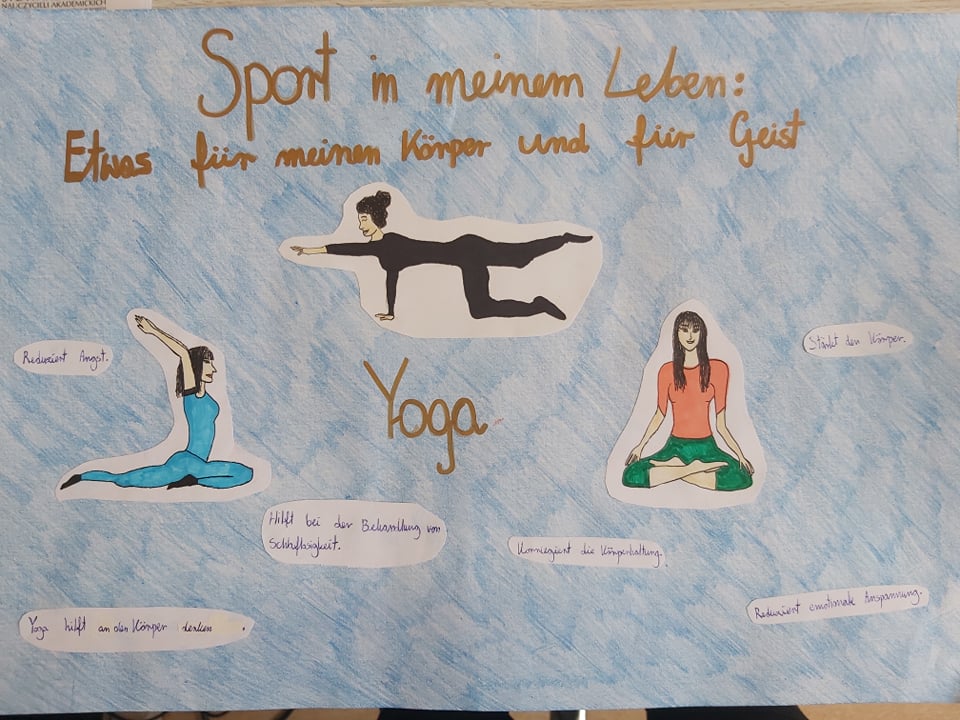 NAUCZYCIELI AKADEMICKICH
Sport in meinem Leben:
Etwas für meinen Körper und für Geist
Reduziert Angst.
Stärkt den Körper.
Yoga
Hilft bei der Behandlung von
Schlaflosigkeit.
Korrregiert die Körperhaltung.
Reduziert emotionale Anspannung.
Yoga hilft an den Körper denken .